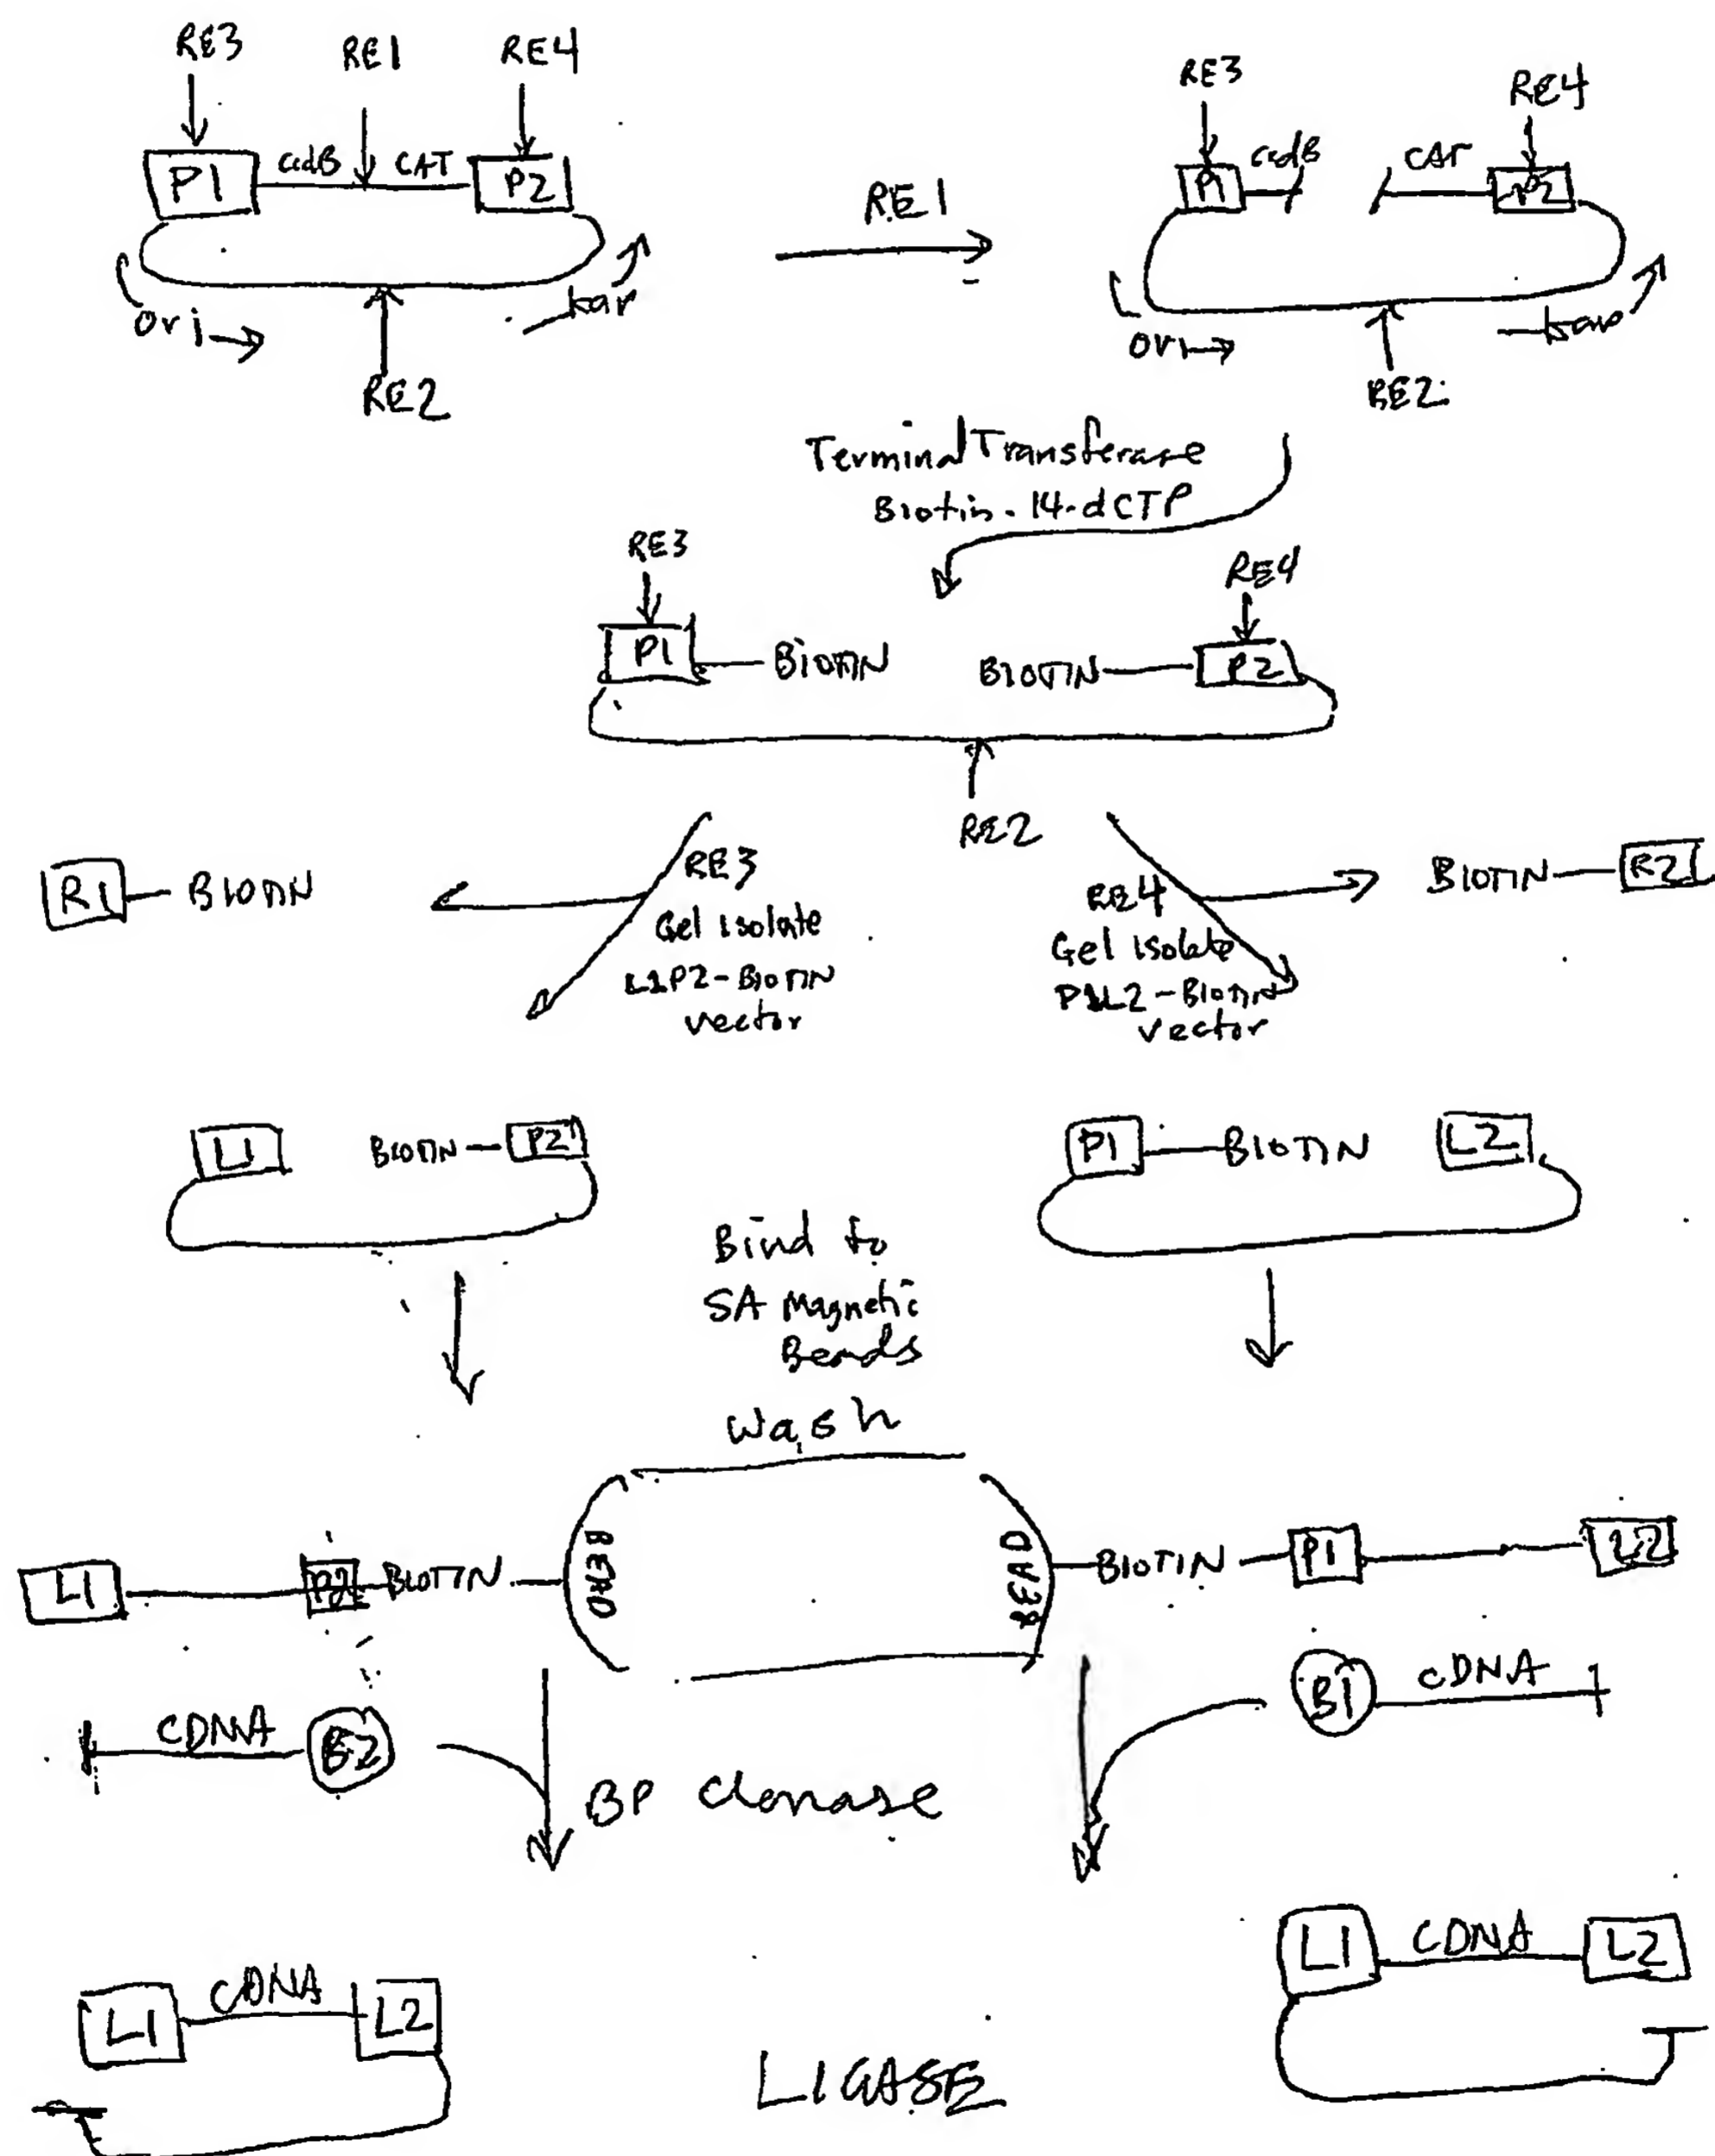 RE3 RE1 RE4
P1 ccdB CAT P2
ori → kan
RE2
RE1
RE3 RE4
P1 ccdB CAT P2
ori →
RE2
Terminal Transferase
Biotin-14-dCTP
RE3 RE4
P1 BIOTIN BIOTIN P2
RE2
R1 BIOTIN
RE3
Gel Isolate
L1P2-BIOTIN
vector
RE4
Gel Isolate
P1L2-BIOTIN
vector
BIOTIN R2
L1 BIOTIN P2
P1 BIOTIN L2
Bind to
SA Magnetic
Beads
Wash
L1 P2 BIOTIN BEAD
BEAD BIOTIN P1 L2
CDNA B2
B1 cDNA
BP clonase
L1 CDNA L2
L1 CDNA L2
LIGASE